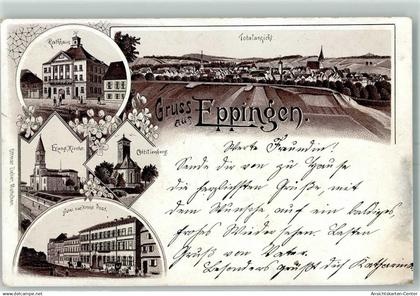 Rathhaus
Totalansicht
Gruss
aus Eppingen.
Evang. Kirche
Ottilienberg
Werte Freundin!
Sende dir von zu Hause
die herzlichsten Grüße, mit
dem Wunsche, auf ein baldiges
frohes Wiedersehen. Besten
Gruß von Vater.
Besonders grüßt dich Katharina
Hotel zur Post
www.ansichtskarten-center.de
Ansichtskarten-Center